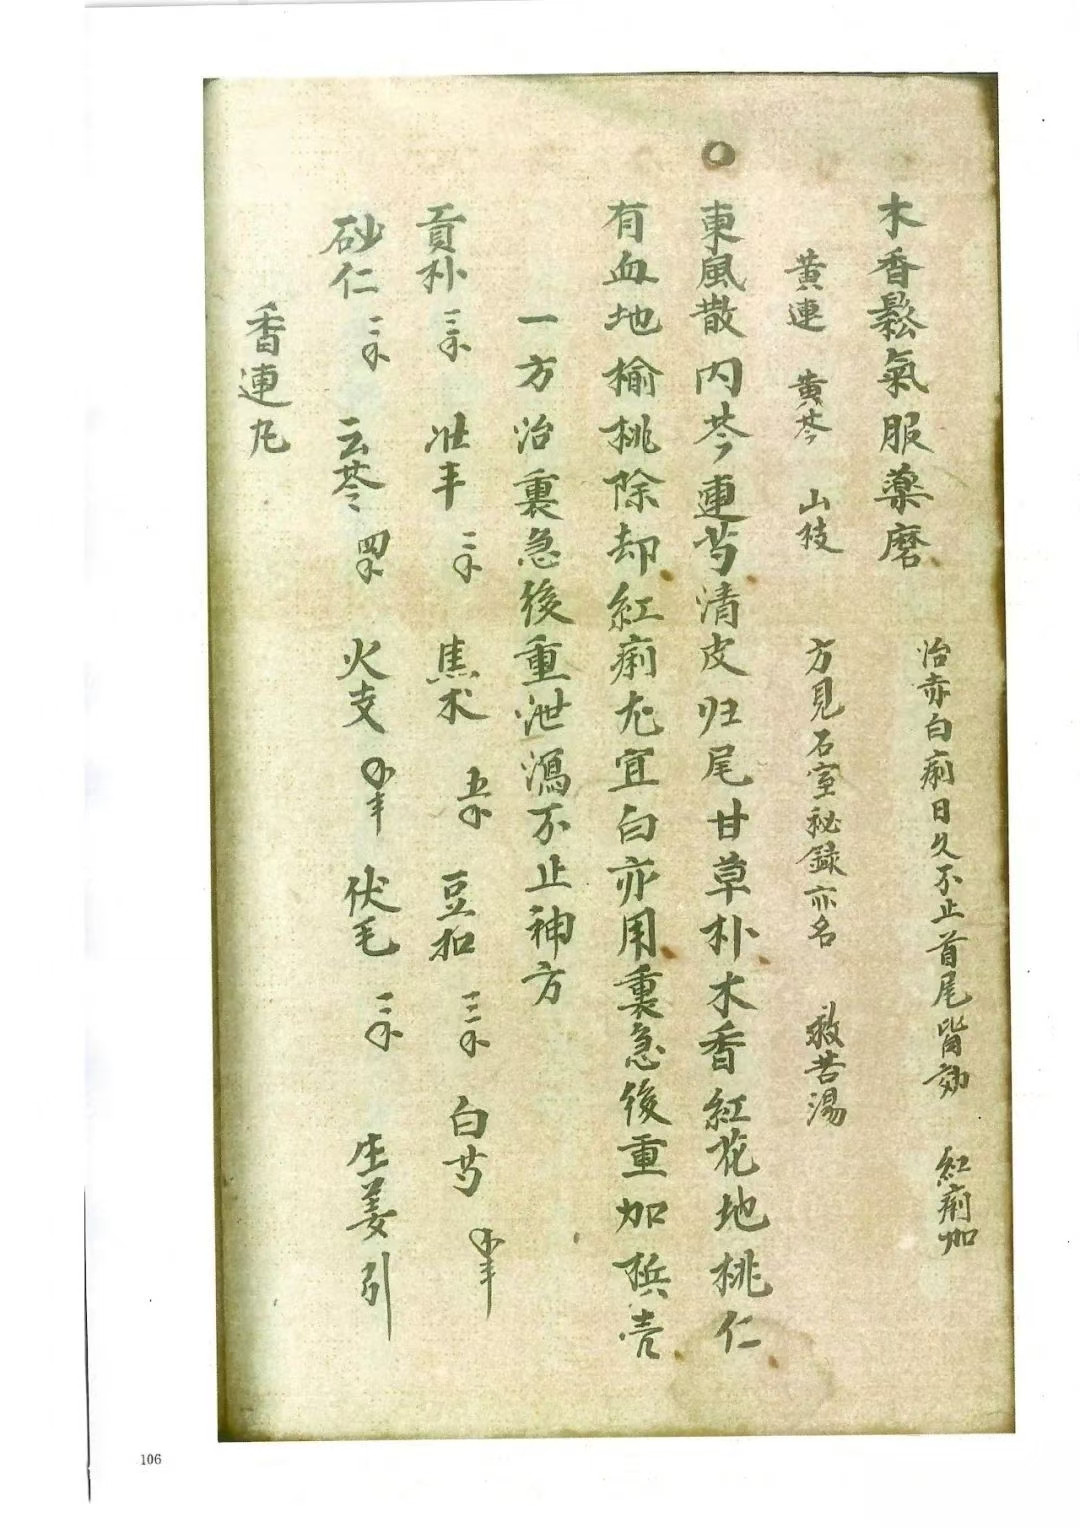 木香鬆氣服藥磨
治赤白痢日久不止首尾皆効 紅痢加
黄連 黄芩 山枝 方見石室秘録亦名 救苦湯
○東風散内芩連芍清皮归尾甘草朴木香紅花地桃仁
有血地榆桃除却紅痢尤宜白亦用裏急後重加梹壳
一方治裏急後重泄瀉不止神方
貢朴 准丰 焦术 豆扣 白芍
砂仁 云苓 火支 伏毛 生姜引
香連丸
106